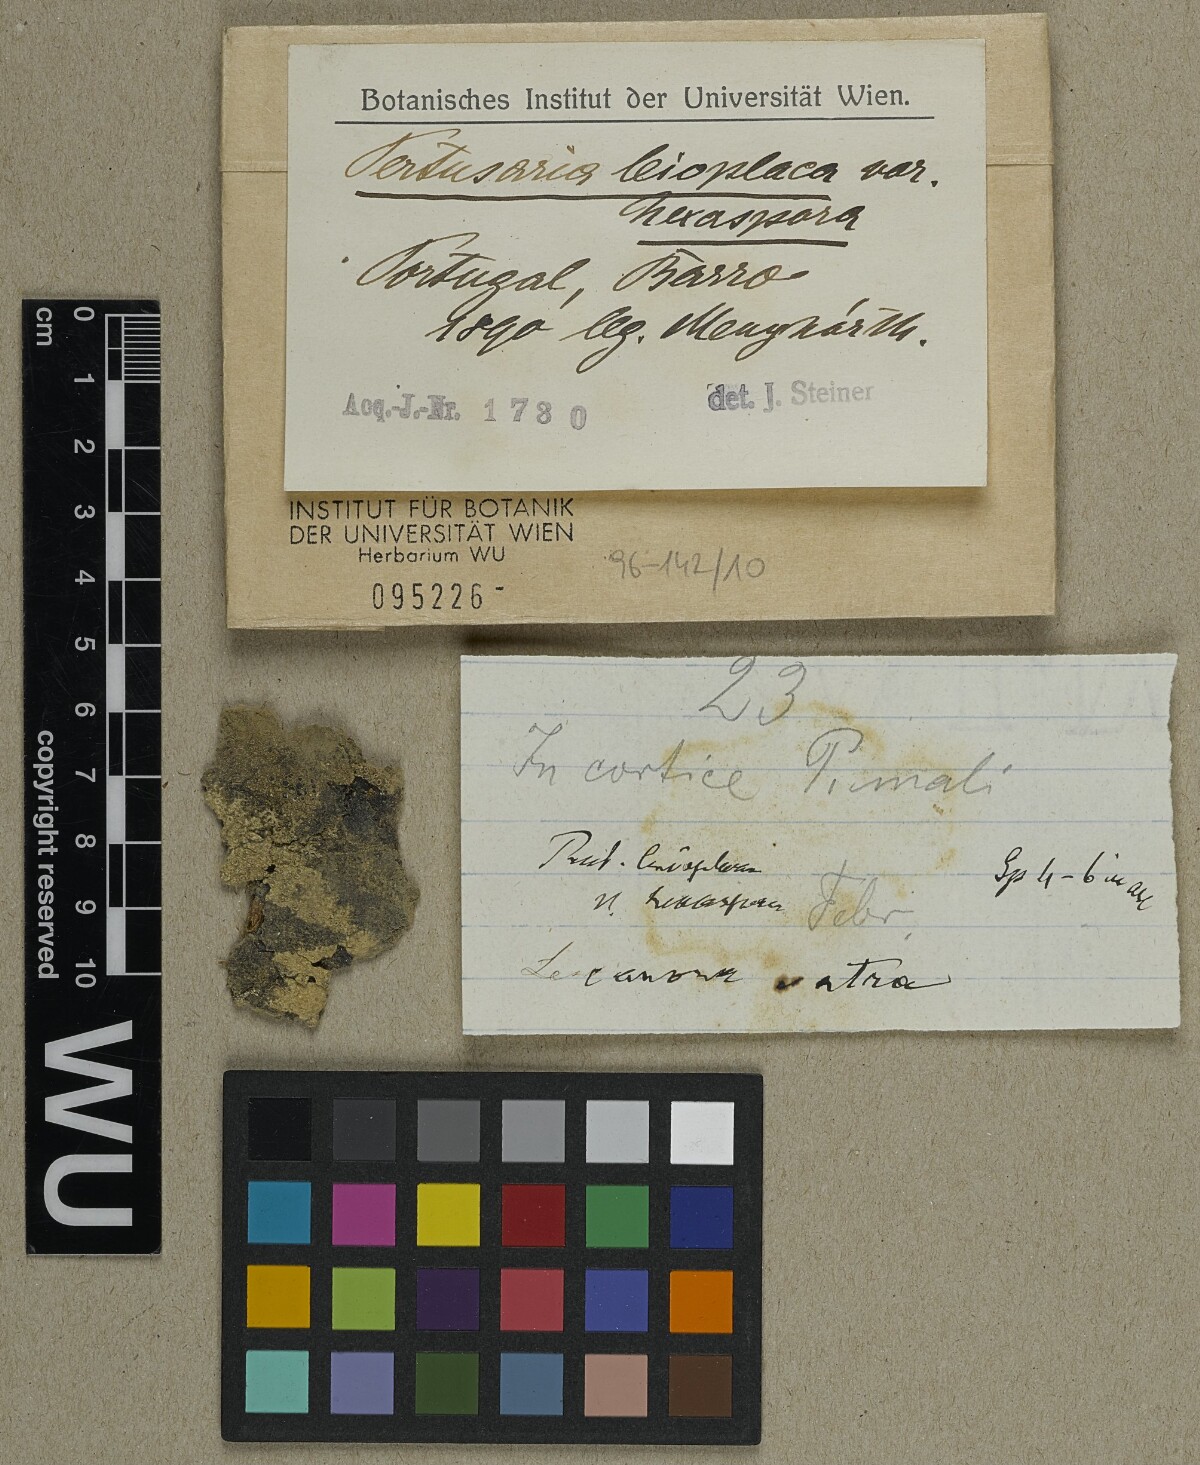 Botanisches Institut der Universität Wien.
Pertusaria leioplaca var.
hexaspora
Portugal, Barro
1890 leg. Menyhárth.
Acq.-J.-Nr. 1730
det. J. Steiner
INSTITUT FÜR BOTANIK
DER UNIVERSITÄT WIEN
Herbarium WU
095226-
96-142/10
cm
0
1
2
3
4
5
6
7
8
9
10
copyright reserved
WU
23
In cortice P. mali
Sp 4-6 in asc
v. hexaspora
Febr.
Lecanora atra